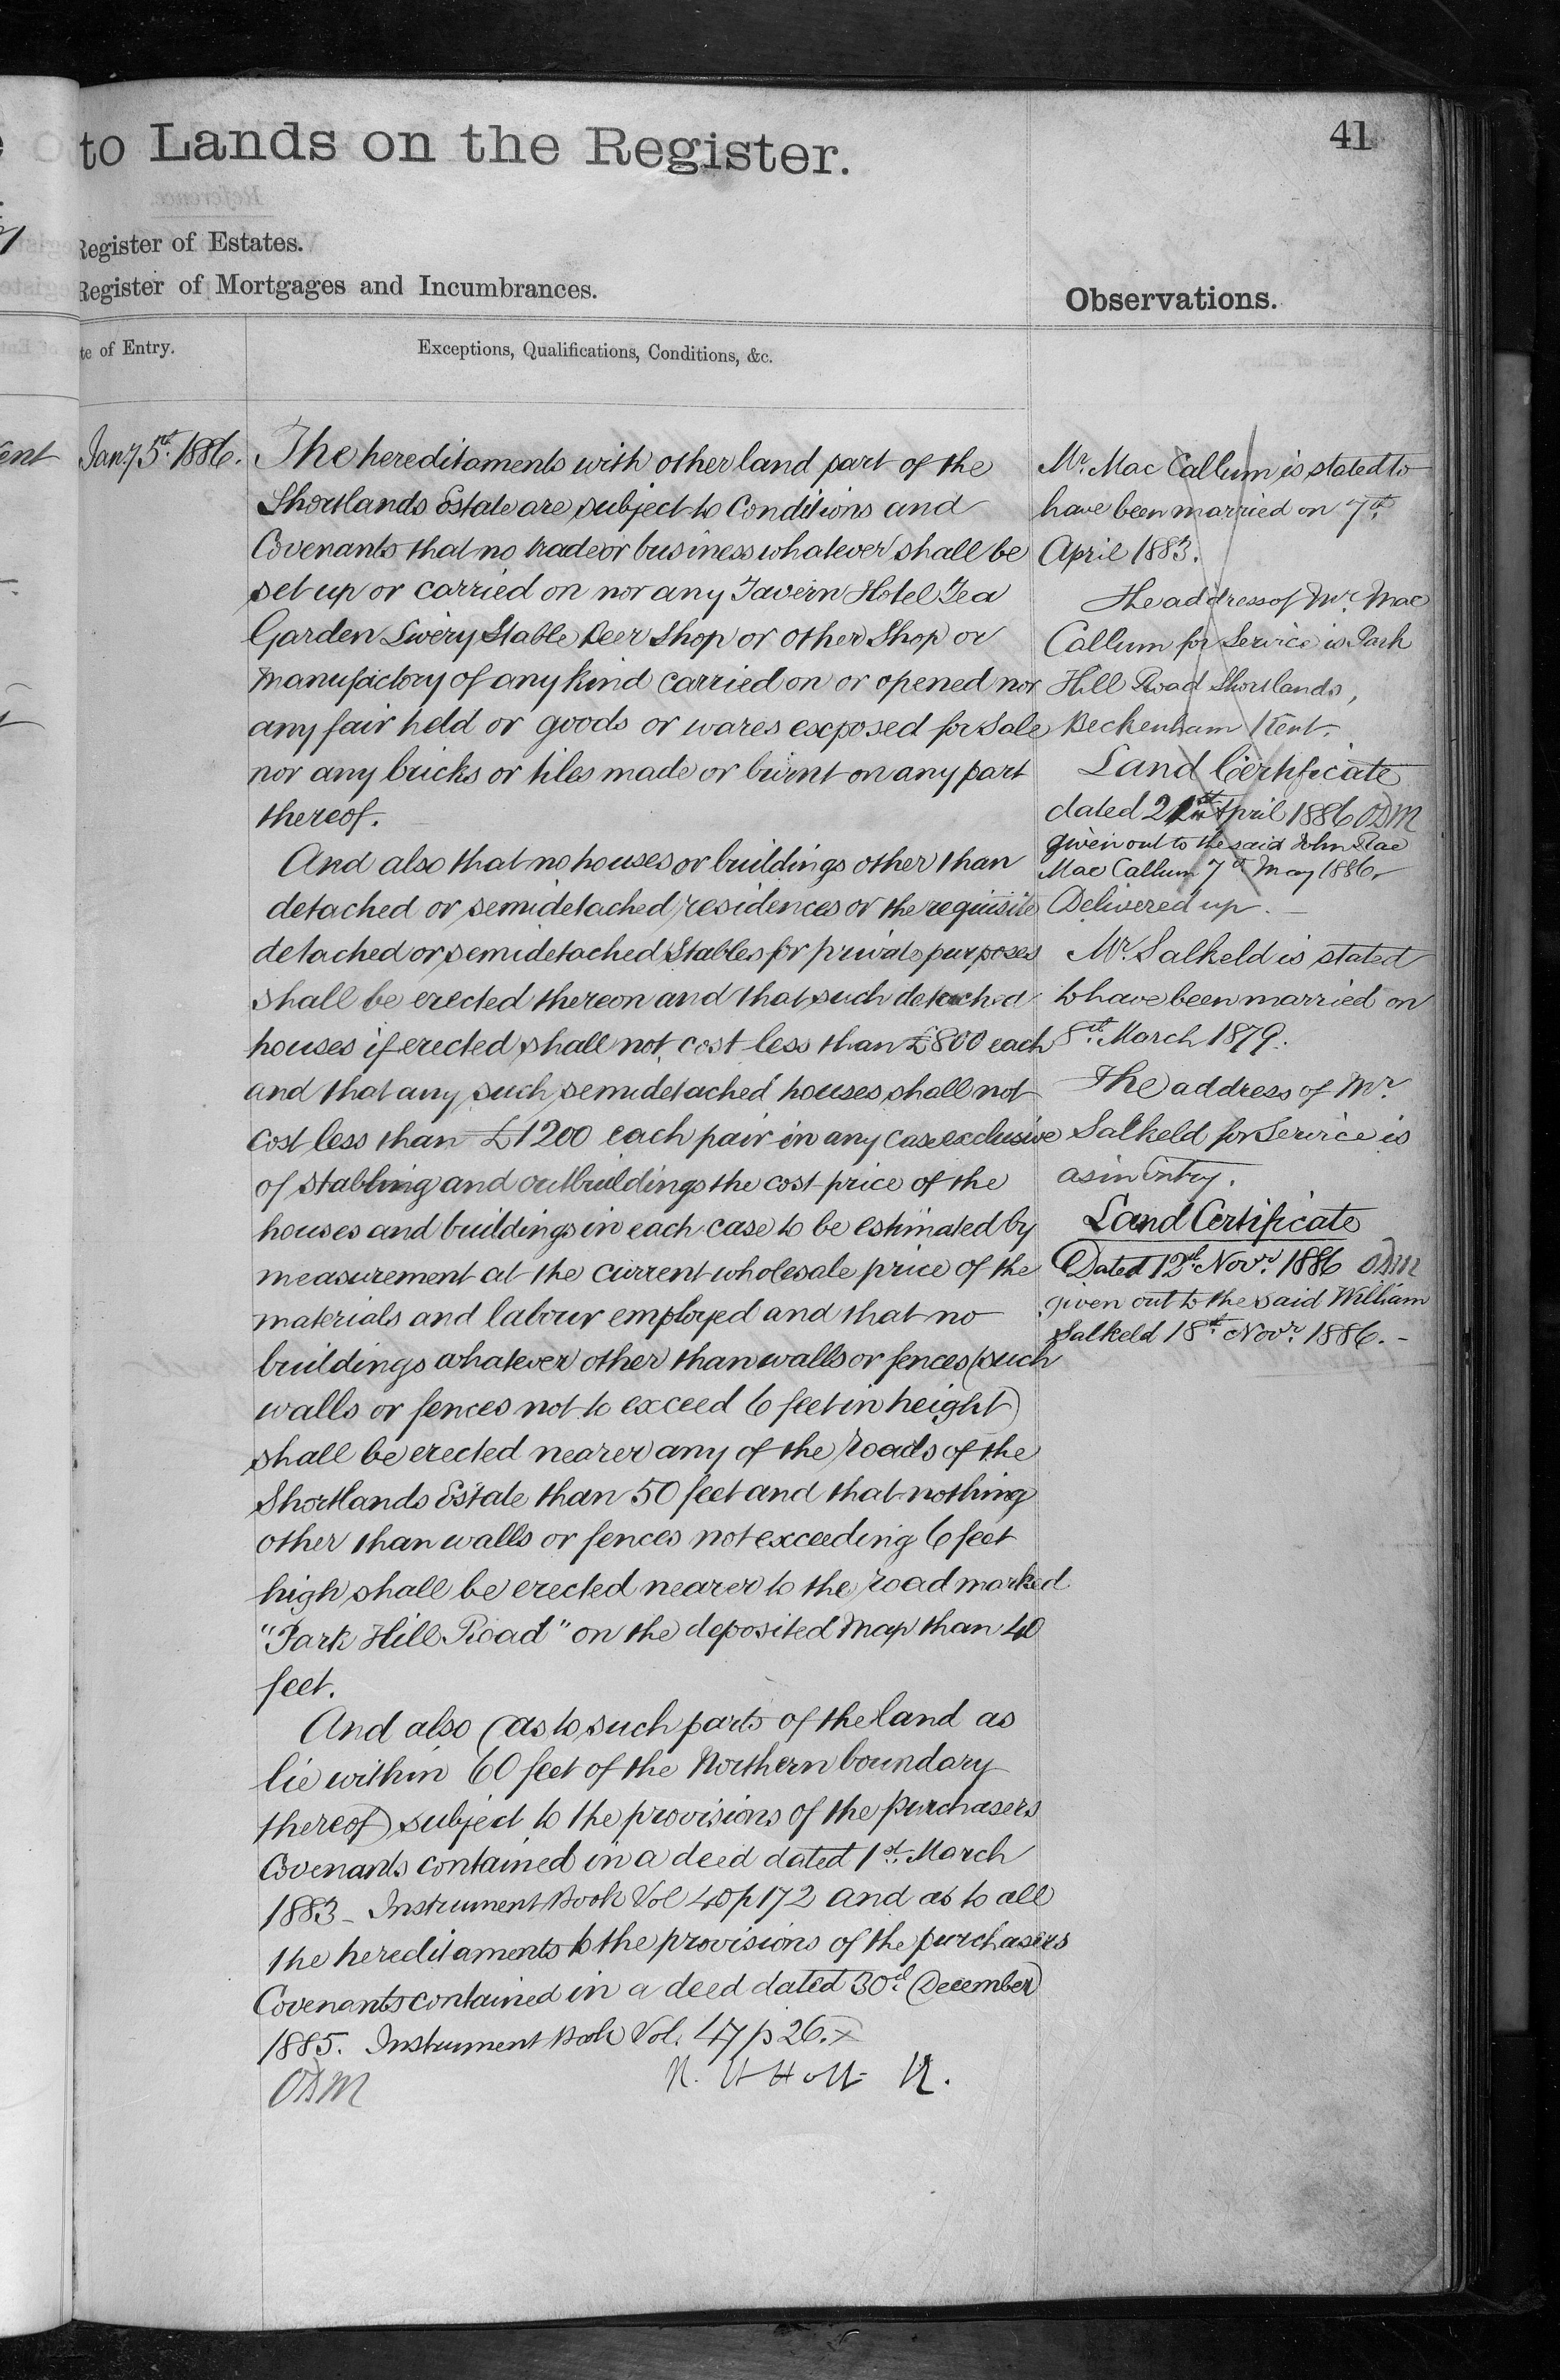 to Lands on the Register.
41
Register of Estates.
Register of Mortgages and Incumbrances.
Observations.
te of Entry.
Exceptions, Qualifications, Conditions, &c.
ent
Jany 5th 1886.
The hereditaments with other land part of the
Shortlands Estate are subject to Conditions and
Covenants that no trade or business whatever shall be
set up or carried on nor any Tavern Hotel Tea
Garden Livery Stable Beer Shop or other Shop or
Manufactory of any kind carried on or opened nor
any fair held or goods or wares exposed for Sale
nor any bricks or tiles made or burnt on any part
thereof.
And also that no houses or buildings other than
detached or semidetached residences or the requisite
detached or semidetached Stables for private purposes
shall be erected thereon and that such detached
houses if erected shall not cost less than £800 each
and that any such semidetached houses shall not
cost less than £1200 each pair in any case exclusive
of stabling and outbuildings the cost price of the
houses and buildings in each case to be estimated by
measurement at the current wholesale price of the
materials and labour employed and that no
buildings whatever other than walls or fences (such
walls or fences not to exceed 6 feet in height)
shall be erected nearer any of the roads of the
Shortlands Estate than 50 feet and that nothing
other than walls or fences not exceeding 6 feet
high shall be erected nearer to the road marked
"Park Hill Road" on the deposited Map than 40
feet.
And also (as to such parts of the land as
lie within 60 feet of the Northern boundary
thereof) subject to the provisions of the purchasers
Covenants contained in a deed dated 1st March
1883 - Instrument Book Vol 40 p 172 and as to all
the hereditaments to the provisions of the purchasers
Covenants contained in a deed dated 30th December
1885. Instrument Book Vol. 47 p 26. x
ODM
Mr. Mac Callum is stated to
have been married on 7th
April 1883.
The address of Mr. Mac
Callum for Service is Park
Hill Road Shortlands,
Beckenham Kent.
Land Certificate
dated 21st April 1886 ODM
given out to the said John Rae
Mac Callum 7th May 1886.
Delivered up. -
Mr. Salkeld is stated
to have been married on
8th March 1879.
The address of Mr.
Salkeld for Service is
as in Entry.
Land Certificate
Dated 12th Novr. 1886 ODM
given out to the said William
Salkeld 18th Novr. 1886. -